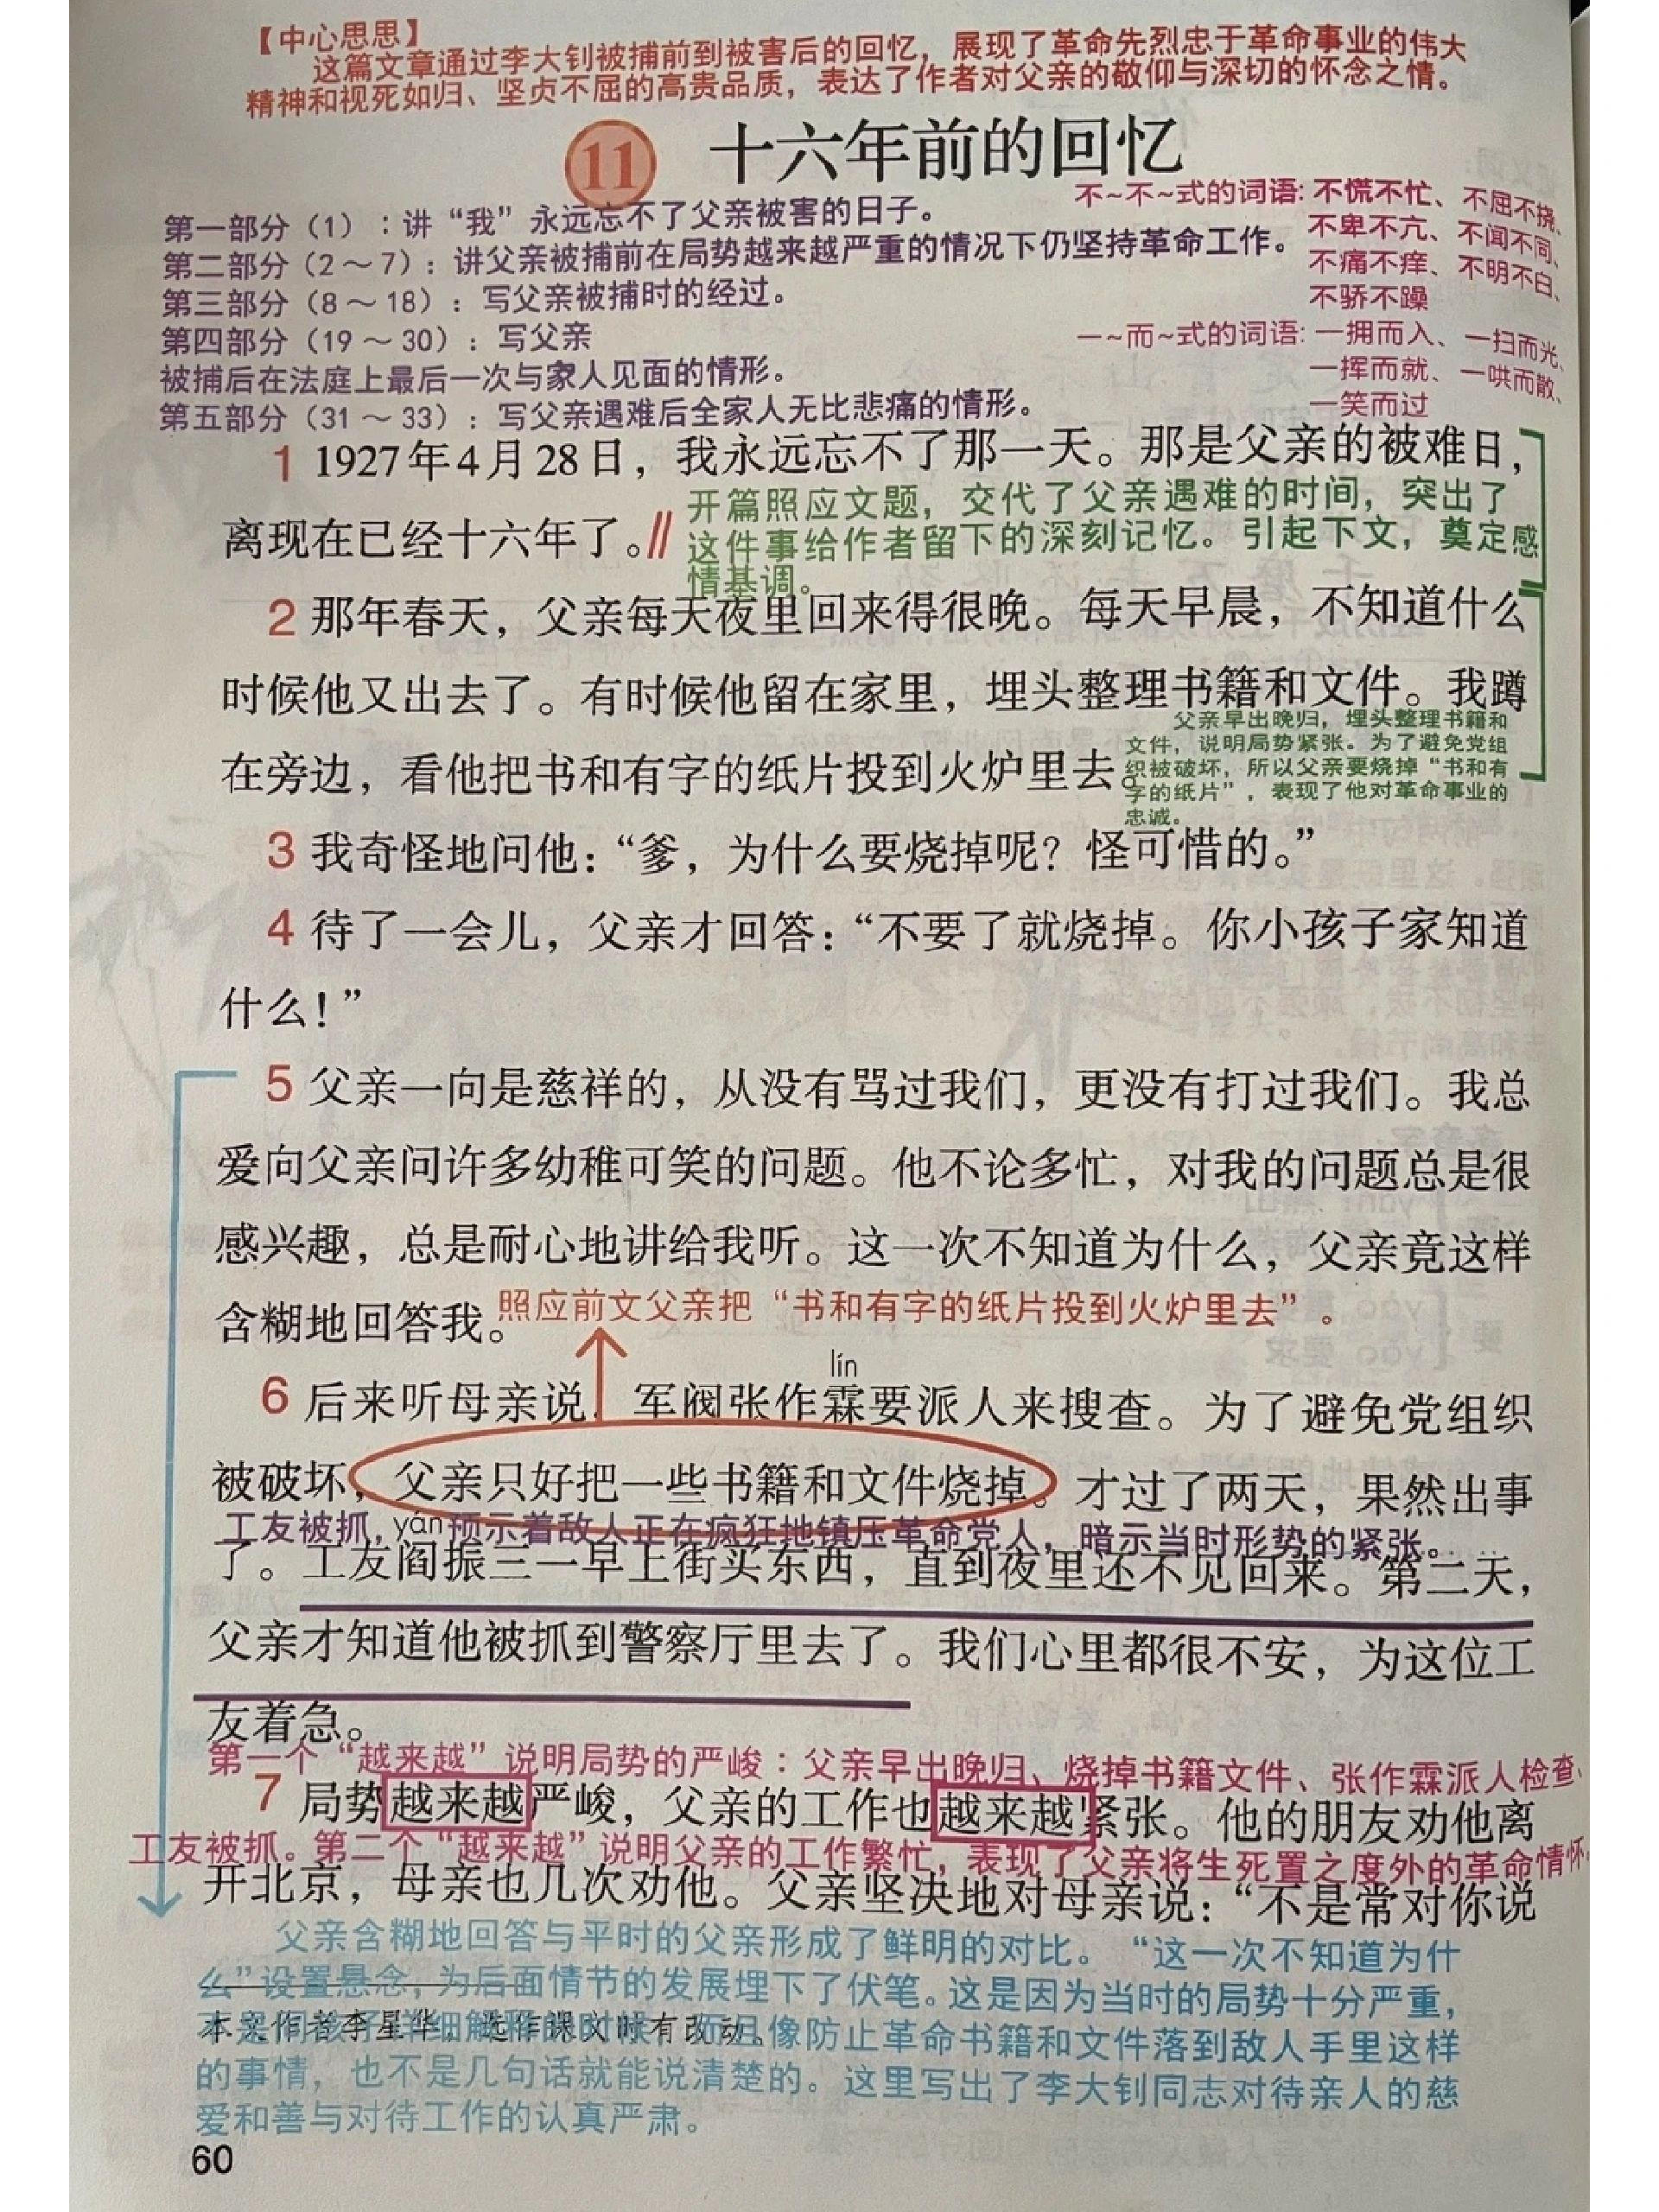 【中心思思】
这篇文章通过李大钊被捕前到被害后的回忆，展现了革命先烈忠于革命事业的伟大
精神和视死如归、坚贞不屈的高贵品质，表达了作者对父亲的敬仰与深切的怀念之情。
11 十六年前的回忆
不~不~式的词语：不慌不忙、不屈不挠、
不卑不亢、不闻不同、
不痛不痒、不明不白、
不骄不躁
一~而~式的词语：一拥而入、一扫而光、
一挥而就、一哄而散、
一笑而过
第一部分（1）：讲“我”永远忘不了父亲被害的日子。
第二部分（2～7）：讲父亲被捕前在局势越来越严重的情况下仍坚持革命工作。
第三部分（8～18）：写父亲被捕时的经过。
第四部分（19～30）：写父亲
被捕后在法庭上最后一次与家人见面的情形。
第五部分（31～33）：写父亲遇难后全家人无比悲痛的情形。
1 1927年4月28日，我永远忘不了那一天。那是父亲的被难日，
离现在已经十六年了。//
开篇照应文题，交代了父亲遇难的时间，突出了
这件事给作者留下的深刻记忆。引起下文，奠定感
情基调。
2 那年春天，父亲每天夜里回来得很晚。每天早晨，不知道什么
时候他又出去了。有时候他留在家里，埋头整理书籍和文件。我蹲
在旁边，看他把书和有字的纸片投到火炉里去。
父亲早出晚归，埋头整理书籍和
文件，说明局势紧张。为了避免党组
织被破坏，所以父亲要烧掉“书和有
字的纸片”，表现了他对革命事业的
忠诚。
3 我奇怪地问他：“爹，为什么要烧掉呢？怪可惜的。”
4 待了一会儿，父亲才回答：“不要了就烧掉。你小孩子家知道
什么！”
5 父亲一向是慈祥的，从没有骂过我们，更没有打过我们。我总
爱向父亲问许多幼稚可笑的问题。他不论多忙，对我的问题总是很
感兴趣，总是耐心地讲给我听。这一次不知道为什么，父亲竟这样
含糊地回答我。
照应前文父亲把“书和有字的纸片投到火炉里去”。
lín
6 后来听母亲说，军阀张作霖要派人来搜查。为了避免党组织
被破坏，父亲只好把一些书籍和文件烧掉。才过了两天，果然出事
工友被抓，预示着敌人正在疯狂地镇压革命党人，暗示当时形势的紧张。
yán
了。工友阎振三一早上街买东西，直到夜里还不见回来。第二天，
父亲才知道他被抓到警察厅里去了。我们心里都很不安，为这位工
友着急。
第一个“越来越”说明局势的严峻：父亲早出晚归、烧掉书籍文件、张作霖派人检查、
7 局势越来越严峻，父亲的工作也越来越紧张。他的朋友劝他离
工友被抓。第二个“越来越”说明父亲的工作繁忙，表现了父亲将生死置之度外的革命情怀。
开北京，母亲也几次劝他。父亲坚决地对母亲说：“不是常对你说
父亲含糊地回答与平时的父亲形成了鲜明的对比。“这一次不知道为什
么”设置悬念，为后面情节的发展埋下了伏笔。这是因为当时的局势十分严重，
本文作者李星华，选作课文时有改动。
而且像防止革命书籍和文件落到敌人手里这样
的事情，也不是几句话就能说清楚的。这里写出了李大钊同志对待亲人的慈
爱和善与对待工作的认真严肃。
60